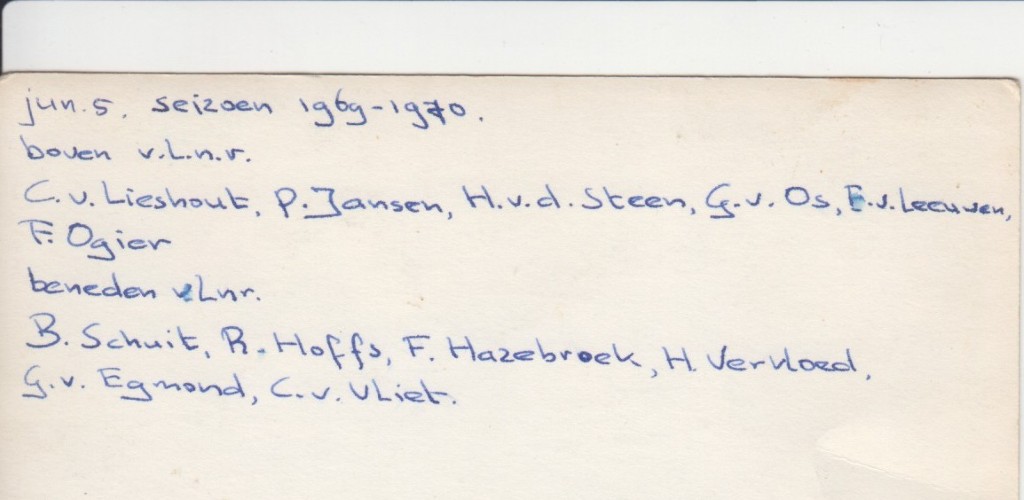 jun. 5. seizoen 1969-1970.
boven v.L.n.r.
C.v. Lieshout, P. Jansen, H.v.d. Steen, G.v. Os, E.v. Leeuwen,
F. Ogier
beneden v.Lnr.
B. Schuit, R. Hoffs, F. Hazebroek, H. Vervloed,
G.v. Egmond, C.v. Vliet.